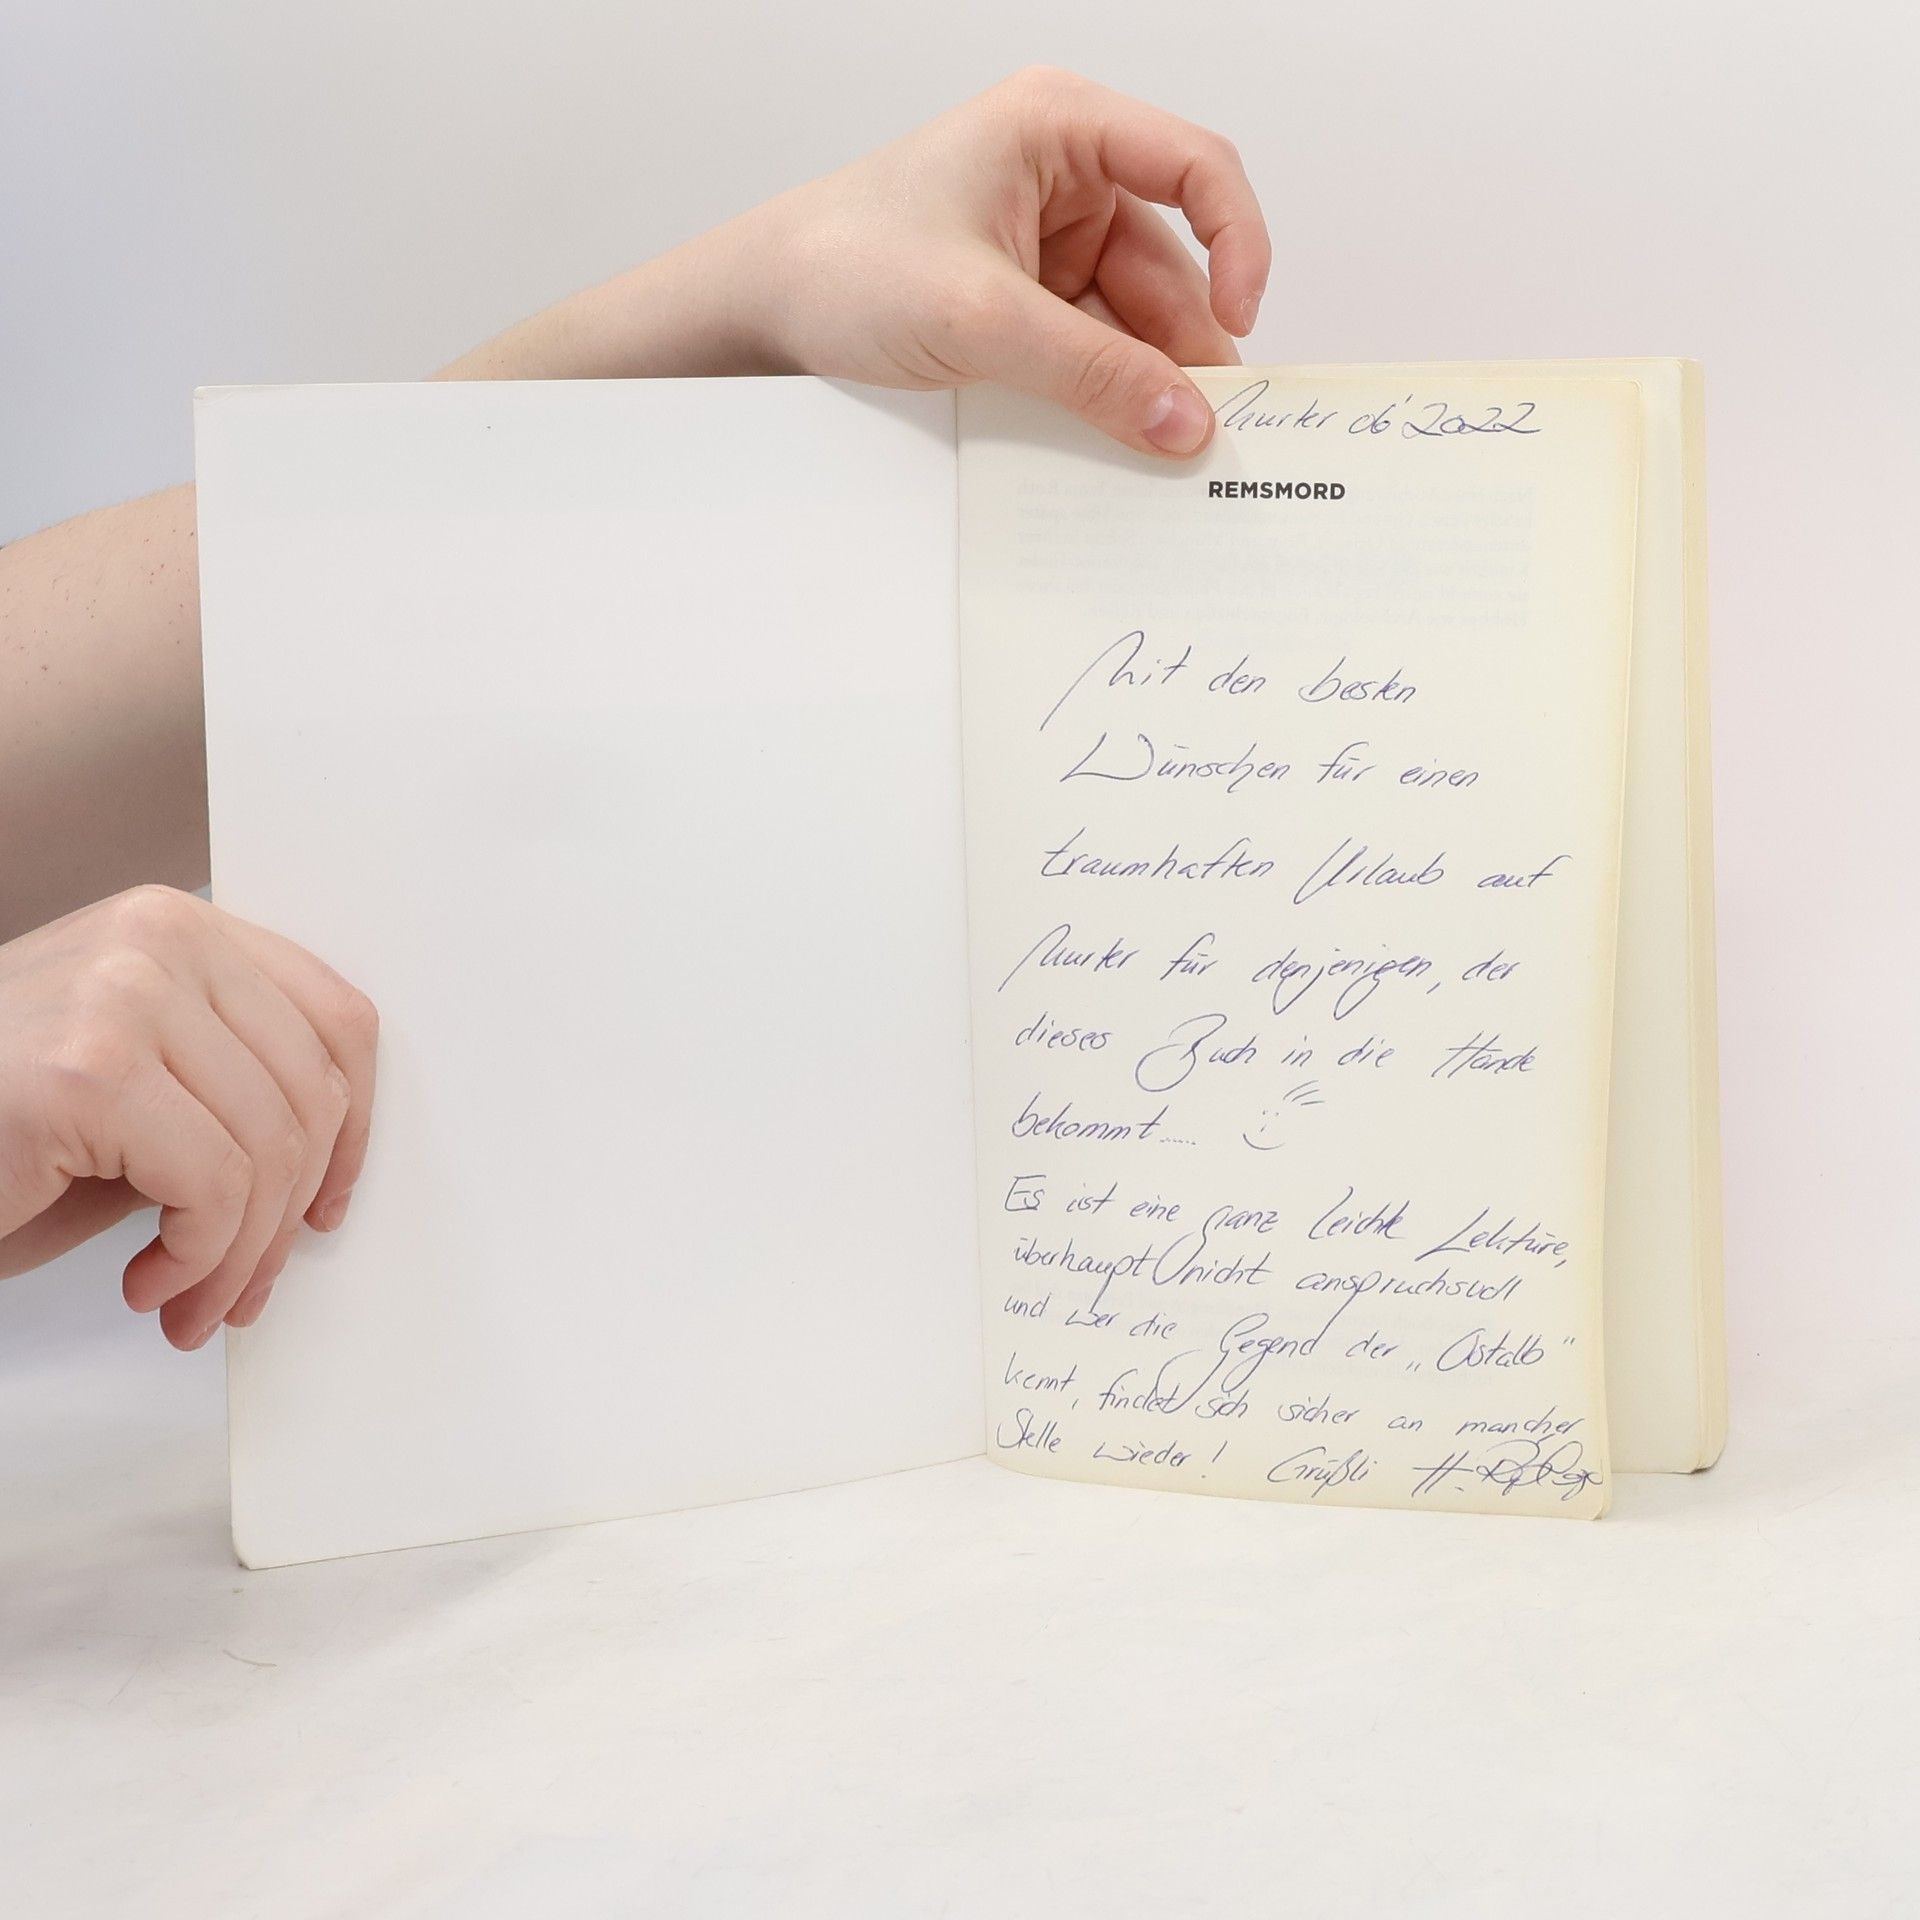 Murter 06'2022
REMSMORD
Mit den besten
Wünschen für einen
traumhaften Urlaub auf
Murter für denjenigen, der
dieses Buch in die Hände
bekommt.....
Es ist eine ganz leichte Lektüre,
überhaupt nicht anspruchsvoll
und wer die Gegend der „Ostalb"
kennt, findet sich sicher an mancher
Stelle wieder! Grüßli H.